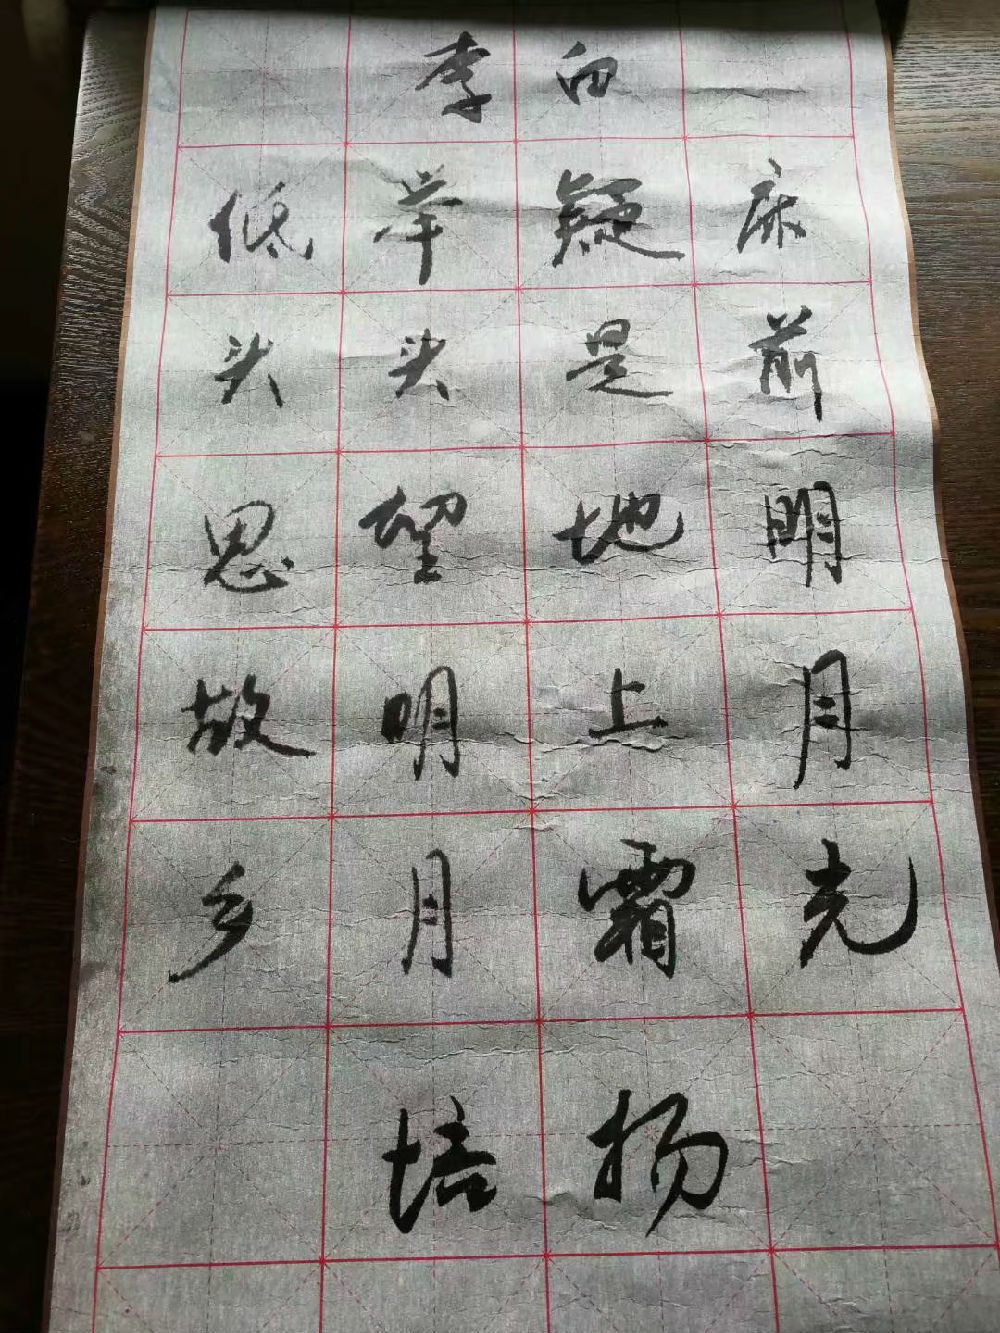 李白
床前明月光
疑是地上霜
举头望明月
低头思故乡
培扬